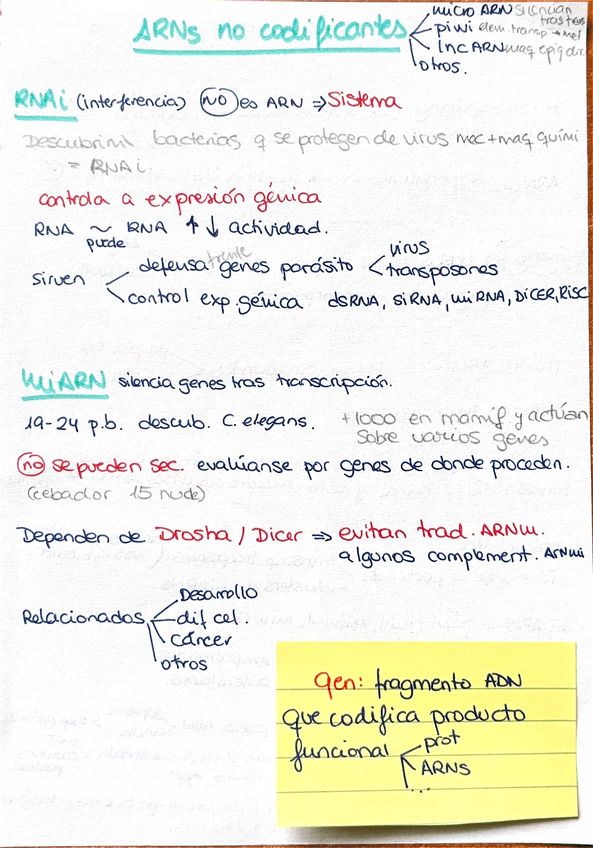 ARNs no codificantes
micro ARN silencian tras trans
piwi elem. transp → mel
lnc ARN maq epig dir
otros.
RNAi (interferencia) NO es ARN ⇒ Sistema
bacterias q se protegen de virus mec + maq quími
= RNAi.
controla a expresión génica
RNA ~ RNA ↑ ↓ actividad.
puede
Sirven
defensa frente genes parásito
virus
transposones
control exp. génica dsRNA, siRNA, miRNA, DICER, RISC
miARN silencia genes tras transcripción.
19-24 p.b. descub. C. elegans.
+1000 en mamíf y actúan
sobre varios genes
no se pueden sec. evalúanse por genes de donde proceden.
(cebador 15 nucle)
Dependen de Drosha / Dicer ⇒ evitan trad. ARNm.
algunos complement. ARNmi
Relacionados
Desarrollo
dif cel.
cáncer
otros
gen: fragmento ADN
que codifica producto
funcional
prot
ARNs
...